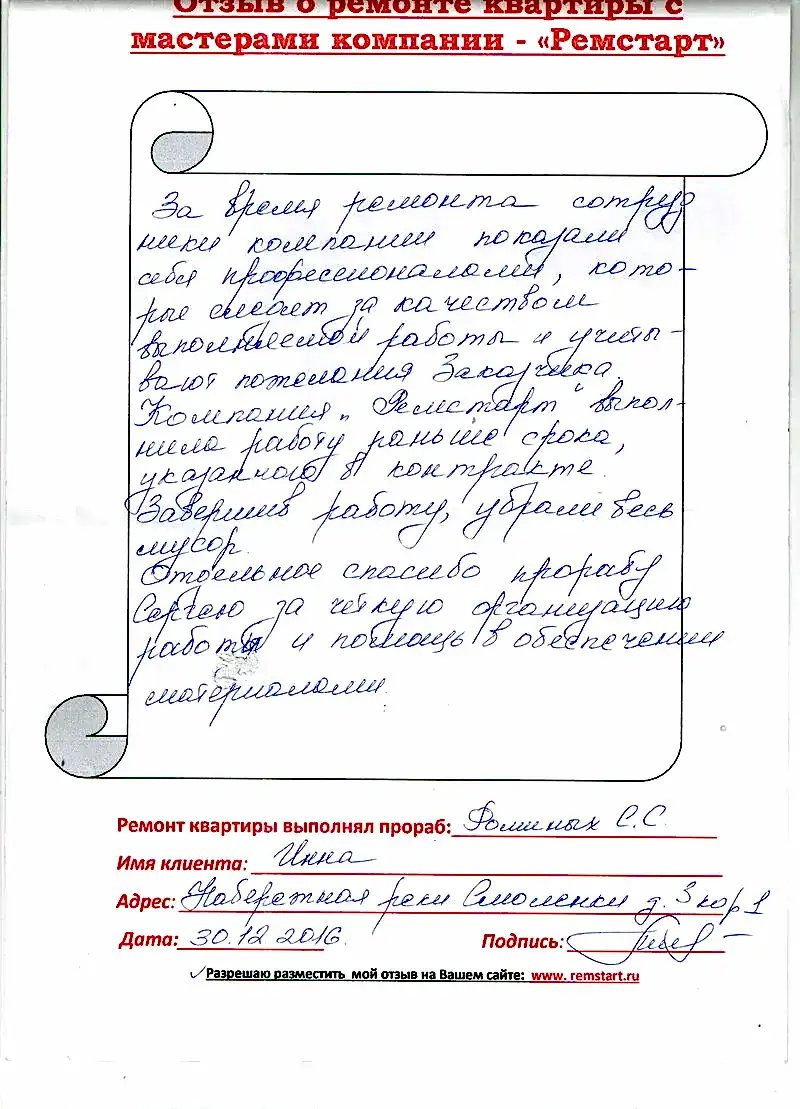 Отзыв о ремонте квартиры с
мастерами компании - «Ремстарт»
За время ремонта сотруд
ники компании показали
себя профессионалами, кото-
рые следят за качеством
выполняемой работы и учиты-
вают пожелания Заказчика.
Компания „Ремстарт“ выпол-
нила работу раньше срока,
указанного в контракте.
Завершив работу, убрали весь
мусор.
Отдельное спасибо прорабу
Сергею за чёткую организацию
работы и помощь в обеспечении
материалами.
Ремонт квартиры выполнял прораб: Фоминых С.С.
Имя клиента: Инна
Адрес: Набережная реки Смоленки д. 3 кор 1
Дата: 30.12 2016.
Подпись:
Разрешаю разместить мой отзыв на Вашем сайте: www. remstart.ru